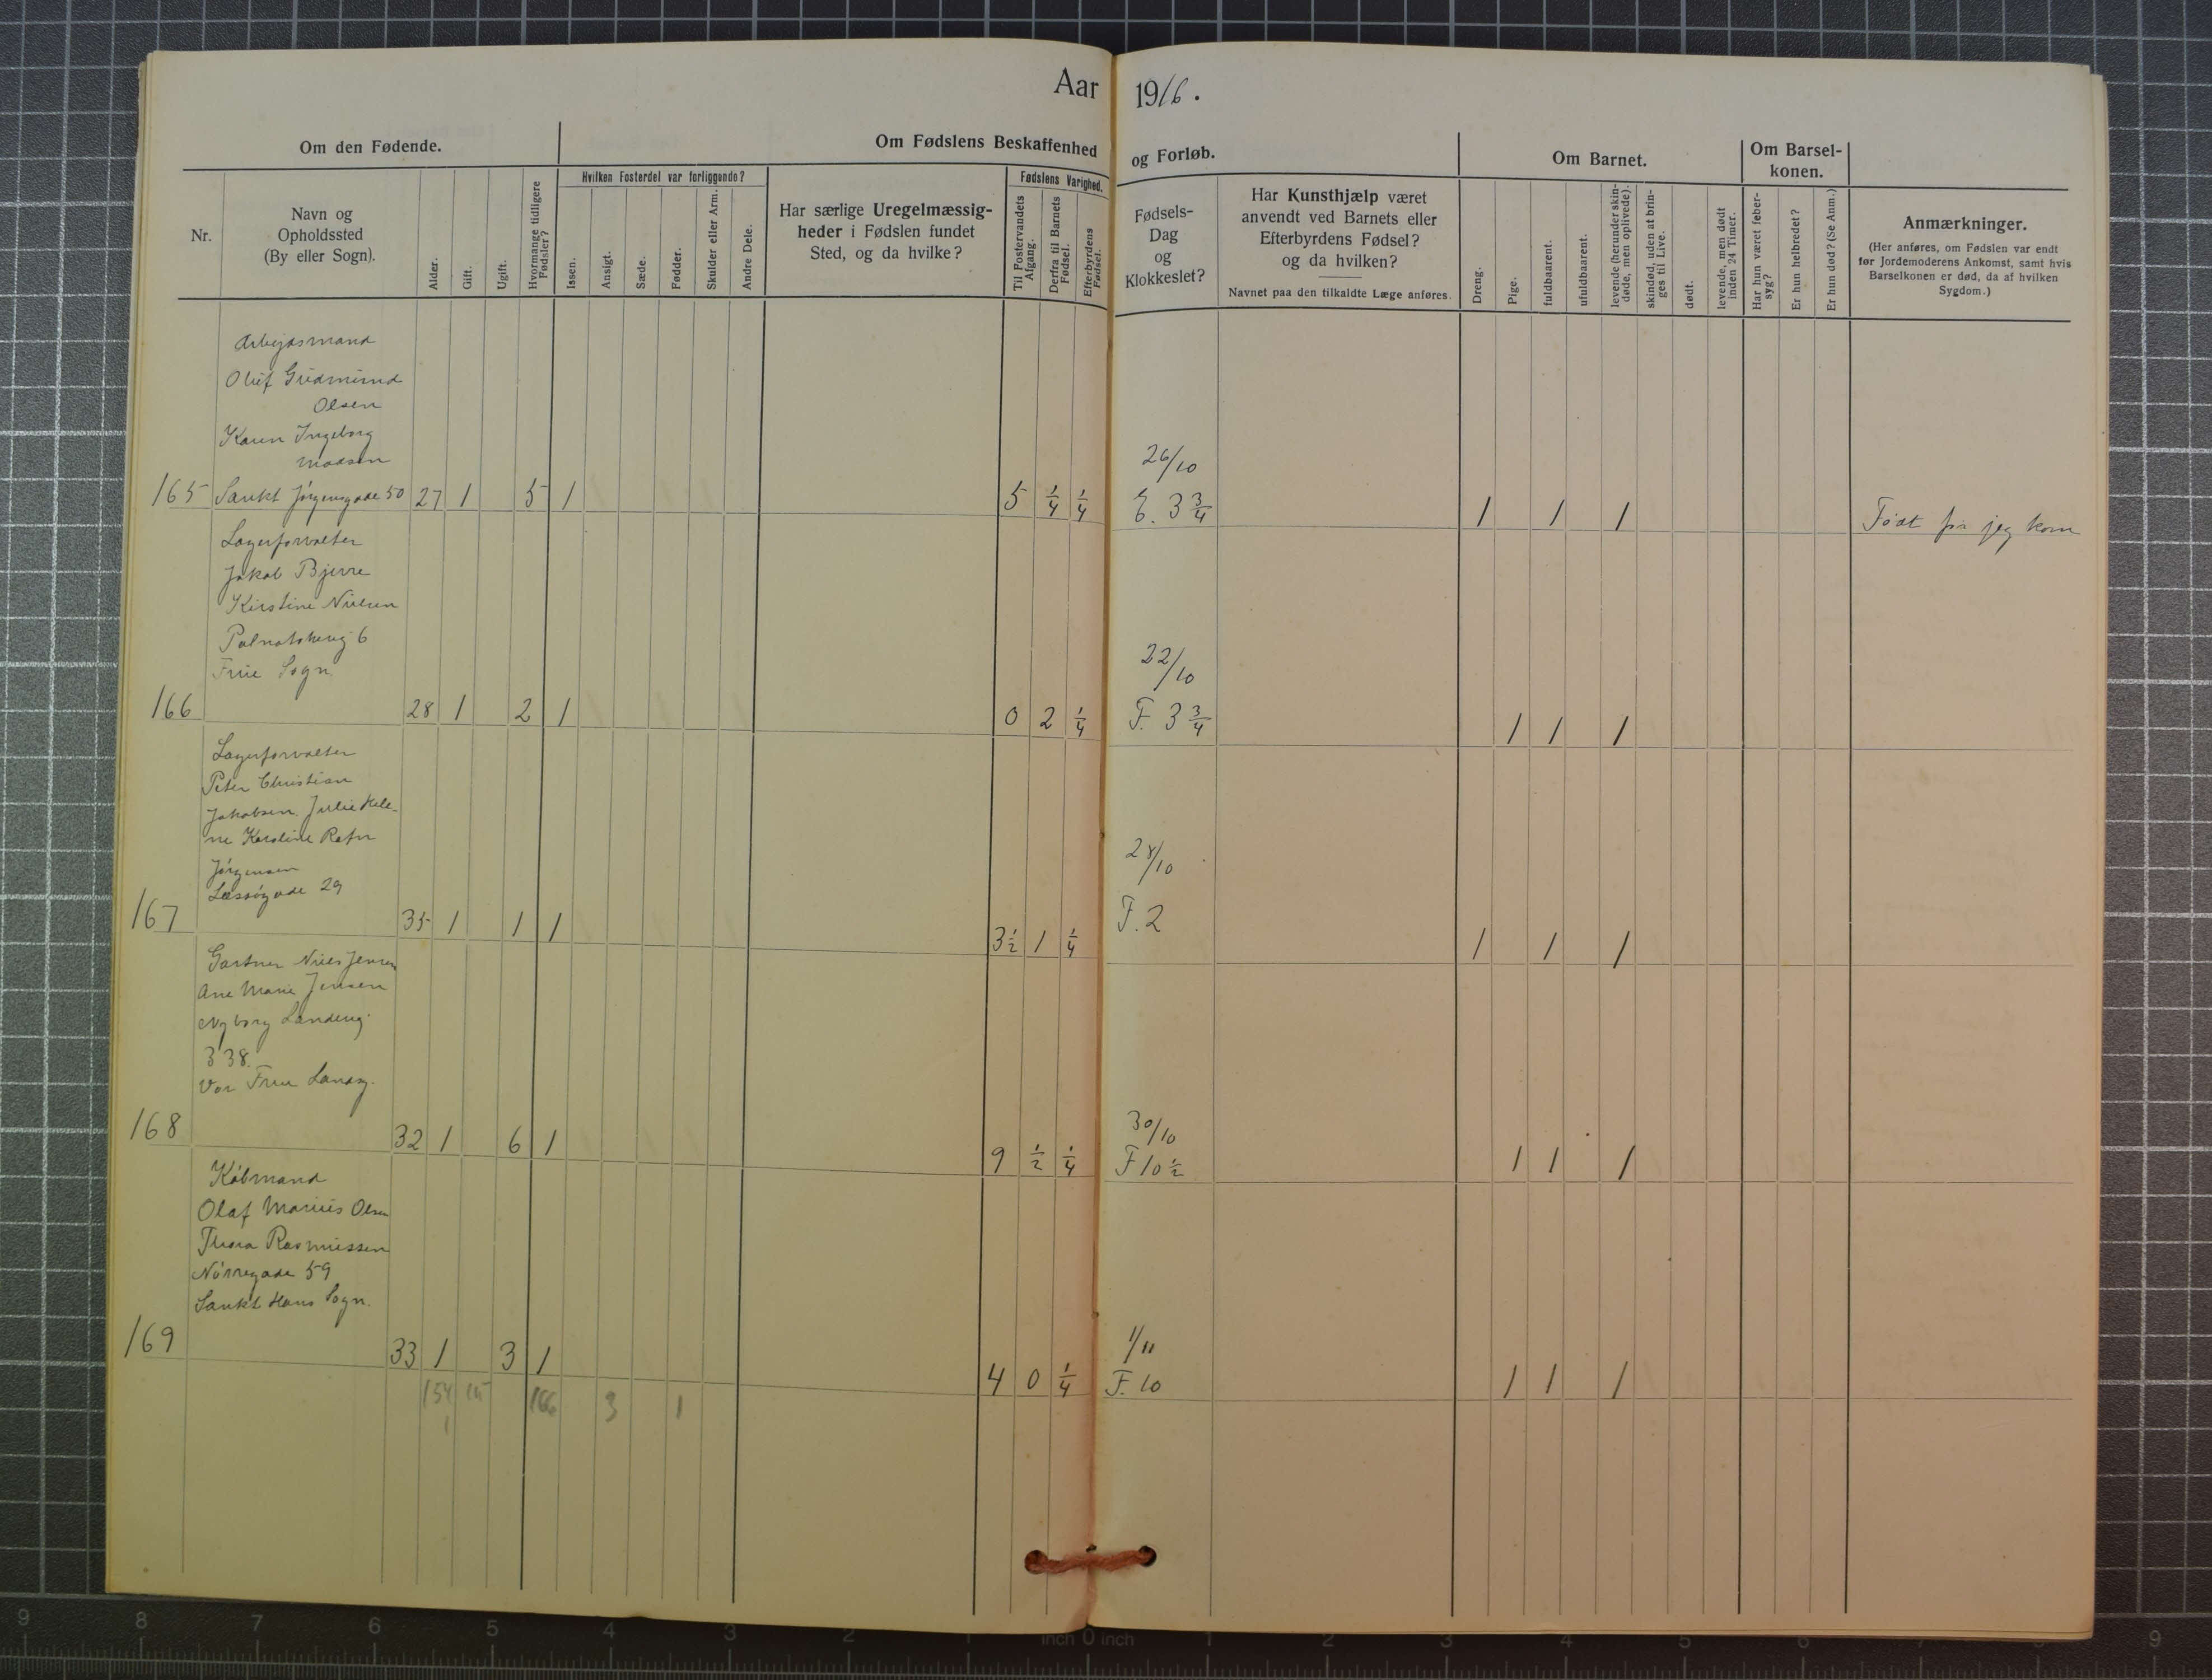 Aar 1916.
Om den Fødende.
Om Fødslens Beskaffenhed og Forløb.
Om Barnet.
Om Barsel-
konen.
Nr.
Navn og
Opholdssted
(By eller Sogn).
Alder.
Gift.
Ugift.
Hvormange tidligere
Fødsler?
Hvilken Fosterdel var forliggende?
Issen.
Ansigt.
Sæde.
Fødder.
Skulder eller Arm.
Andre Dele.
Har særlige Uregelmæssig-
heder i Fødslen fundet
Sted, og da hvilke?
Fødslens Varighed.
Til Fostervandets
Afgang.
Derfra til Barnets
Fødsel.
Efterbyrdens
Fødsel.
Fødsels-
Dag
og
Klokkeslet?
Har Kunsthjælp været
anvendt ved Barnets eller
Efterbyrdens Fødsel?
og da hvilken?
Navnet paa den tilkaldte Læge anføres.
Dreng.
Pige.
fuldbaarent.
ufuldbaarent.
levende (herunder skin-
døde, men oplivede).
skindød, uden at brin-
ges til Live.
dødt.
levende, men dødt
inden 24 Timer.
Har hun været feber-
syg?
Er hun helbredet?
Er hun død? (Se Anm.)
Anmærkninger.
(Her anføres, om Fødslen var endt
før Jordemoderens Ankomst, samt hvis
Barselkonen er død, da af hvilken
Sygdom.)
Arbejdsmand
Oluf Gudmund
Olsen
Karen Ingeborg
Madsen
26/10
165 Sankt Jørgensgade 50 27 1 5 1 5 1/4 1/4 E. 3 3/4 1 1 1 Født før jeg kom
Lagerforvalter
Jakob Bjerre
Kirstine Nielsen
Palnatokevej 6
Frue Sogn
22/10
166 28 1 2 1 0 2 1/4 F. 3 3/4 1 1 1
Lagerforvalter
Peter Christian
Jakobsen. Julie Hele-
ne Karoline Rafn
Jørgensen
Læssøgade 29
28/10
167 35 1 1 1 3 1/2 1 1/4 F. 2 1 1 1
Gartner Niels Jensen
Ane Marie Jensen
Nyborg Landevej
338.
Vor Frue Landsg.
30/10
168 32 1 6 1 9 1/2 1/4 F 10 1/2 1 1 1
Købmand
Olaf Marius Olsen
Thora Rasmussen
Nørregade 59
Sankt Hans Sogn.
1/11
169 33 1 3 1 4 0 1/4 F. 10 1 1 1
154 15 166 3 1
1
9 8 7 6 5 4 3 2 1 inch 0 inch 1 2 3 4 5 6 7 8 9